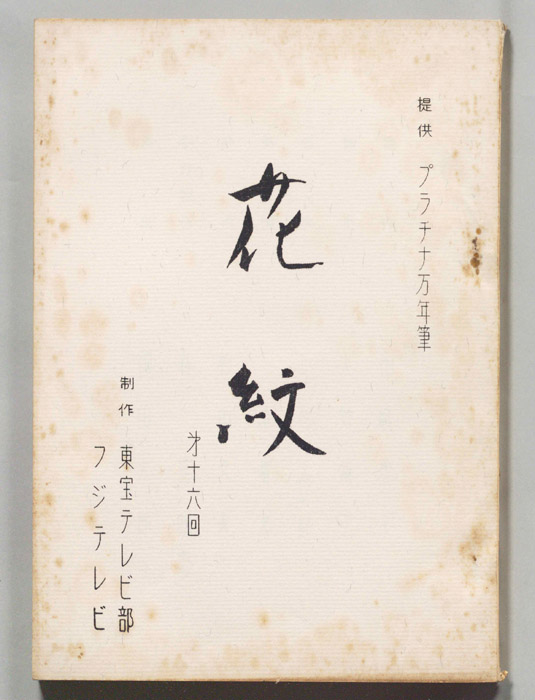 提供 プラチナ万年筆
花紋
才十六回
制作 東宝テレビ部
フジテレビ